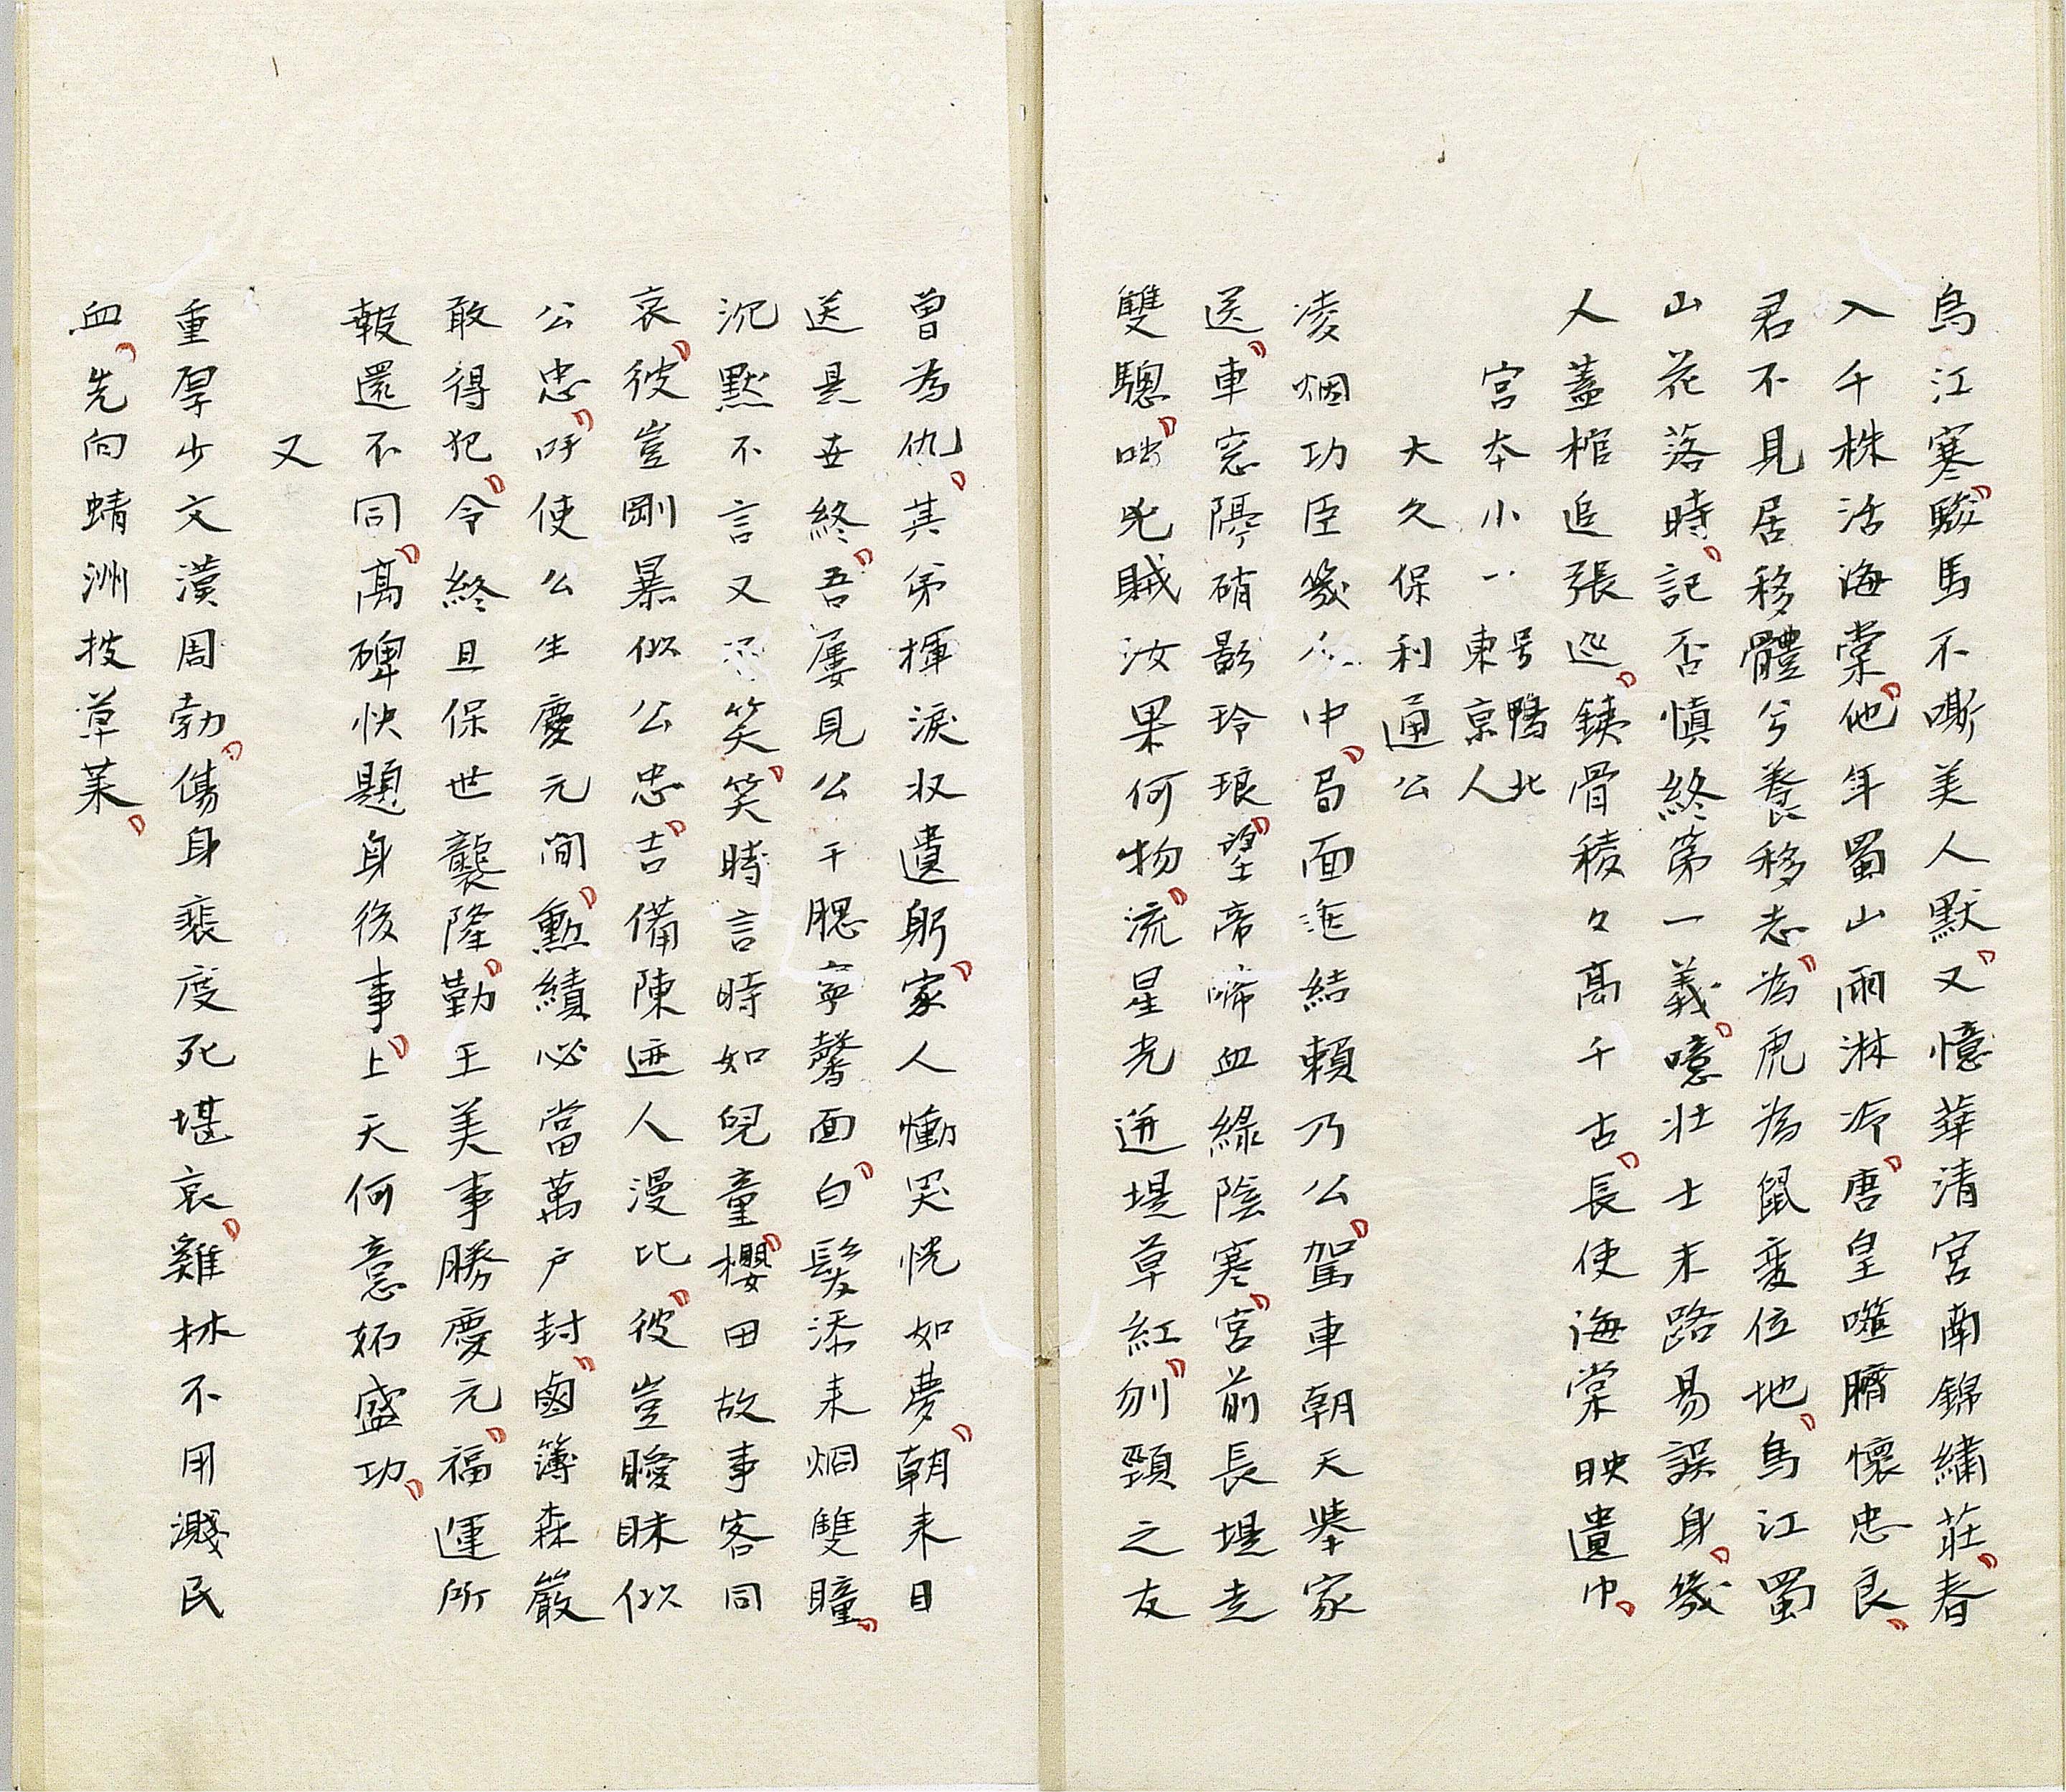 烏江寒、駿馬不嘶美人默、又憶華清宮南錦繡莊、春
入千株活海棠、他年蜀山雨淋冷、唐皇噬臍懷忠良、
君不見居移體兮養移志、為虎為鼠変位地、烏江蜀
山花落時、記否慎終第一義、噫壮士末路易誤身、幾
人蓋棺追張巡、鉄骨稜々高千古、長使海棠映遺巾、
宮本小一 号鴨北 東京人
大久保利通公
凌烟功臣幾人中、局面迤結賴乃公、駕車朝天挙家
送、車窓隠硝影玲琅、望帝啼血綠陰寒、宮前長堤走
雙驄、咄兇賊汝果何物、流星光迸堤草紅、刎頸之友
曽為仇、其弟揮涙収遺躬、家人慟哭恍如夢、朝来目
送是世終、吾屢見公于腮寧馨面、白髮添来烟雙瞳、
沉默不言又不笑、笑時言時如兒童、櫻田故事客同
哀、彼豈剛暴似公忠、吉備陳迹人漫比、彼豈曖昧似
公忠、呼使公生慶元間、勲績必當萬戸封、鹵簿森嚴
敢得犯、令終且保世襲隆、勤王美事勝慶元、福運所
報還不同、高碑快題身後事、上天何意妬盛功、
又
重厚少文漢周勃、傷身裴度死堪哀、雞林不用濺民
血、先向蜻洲披草萊、